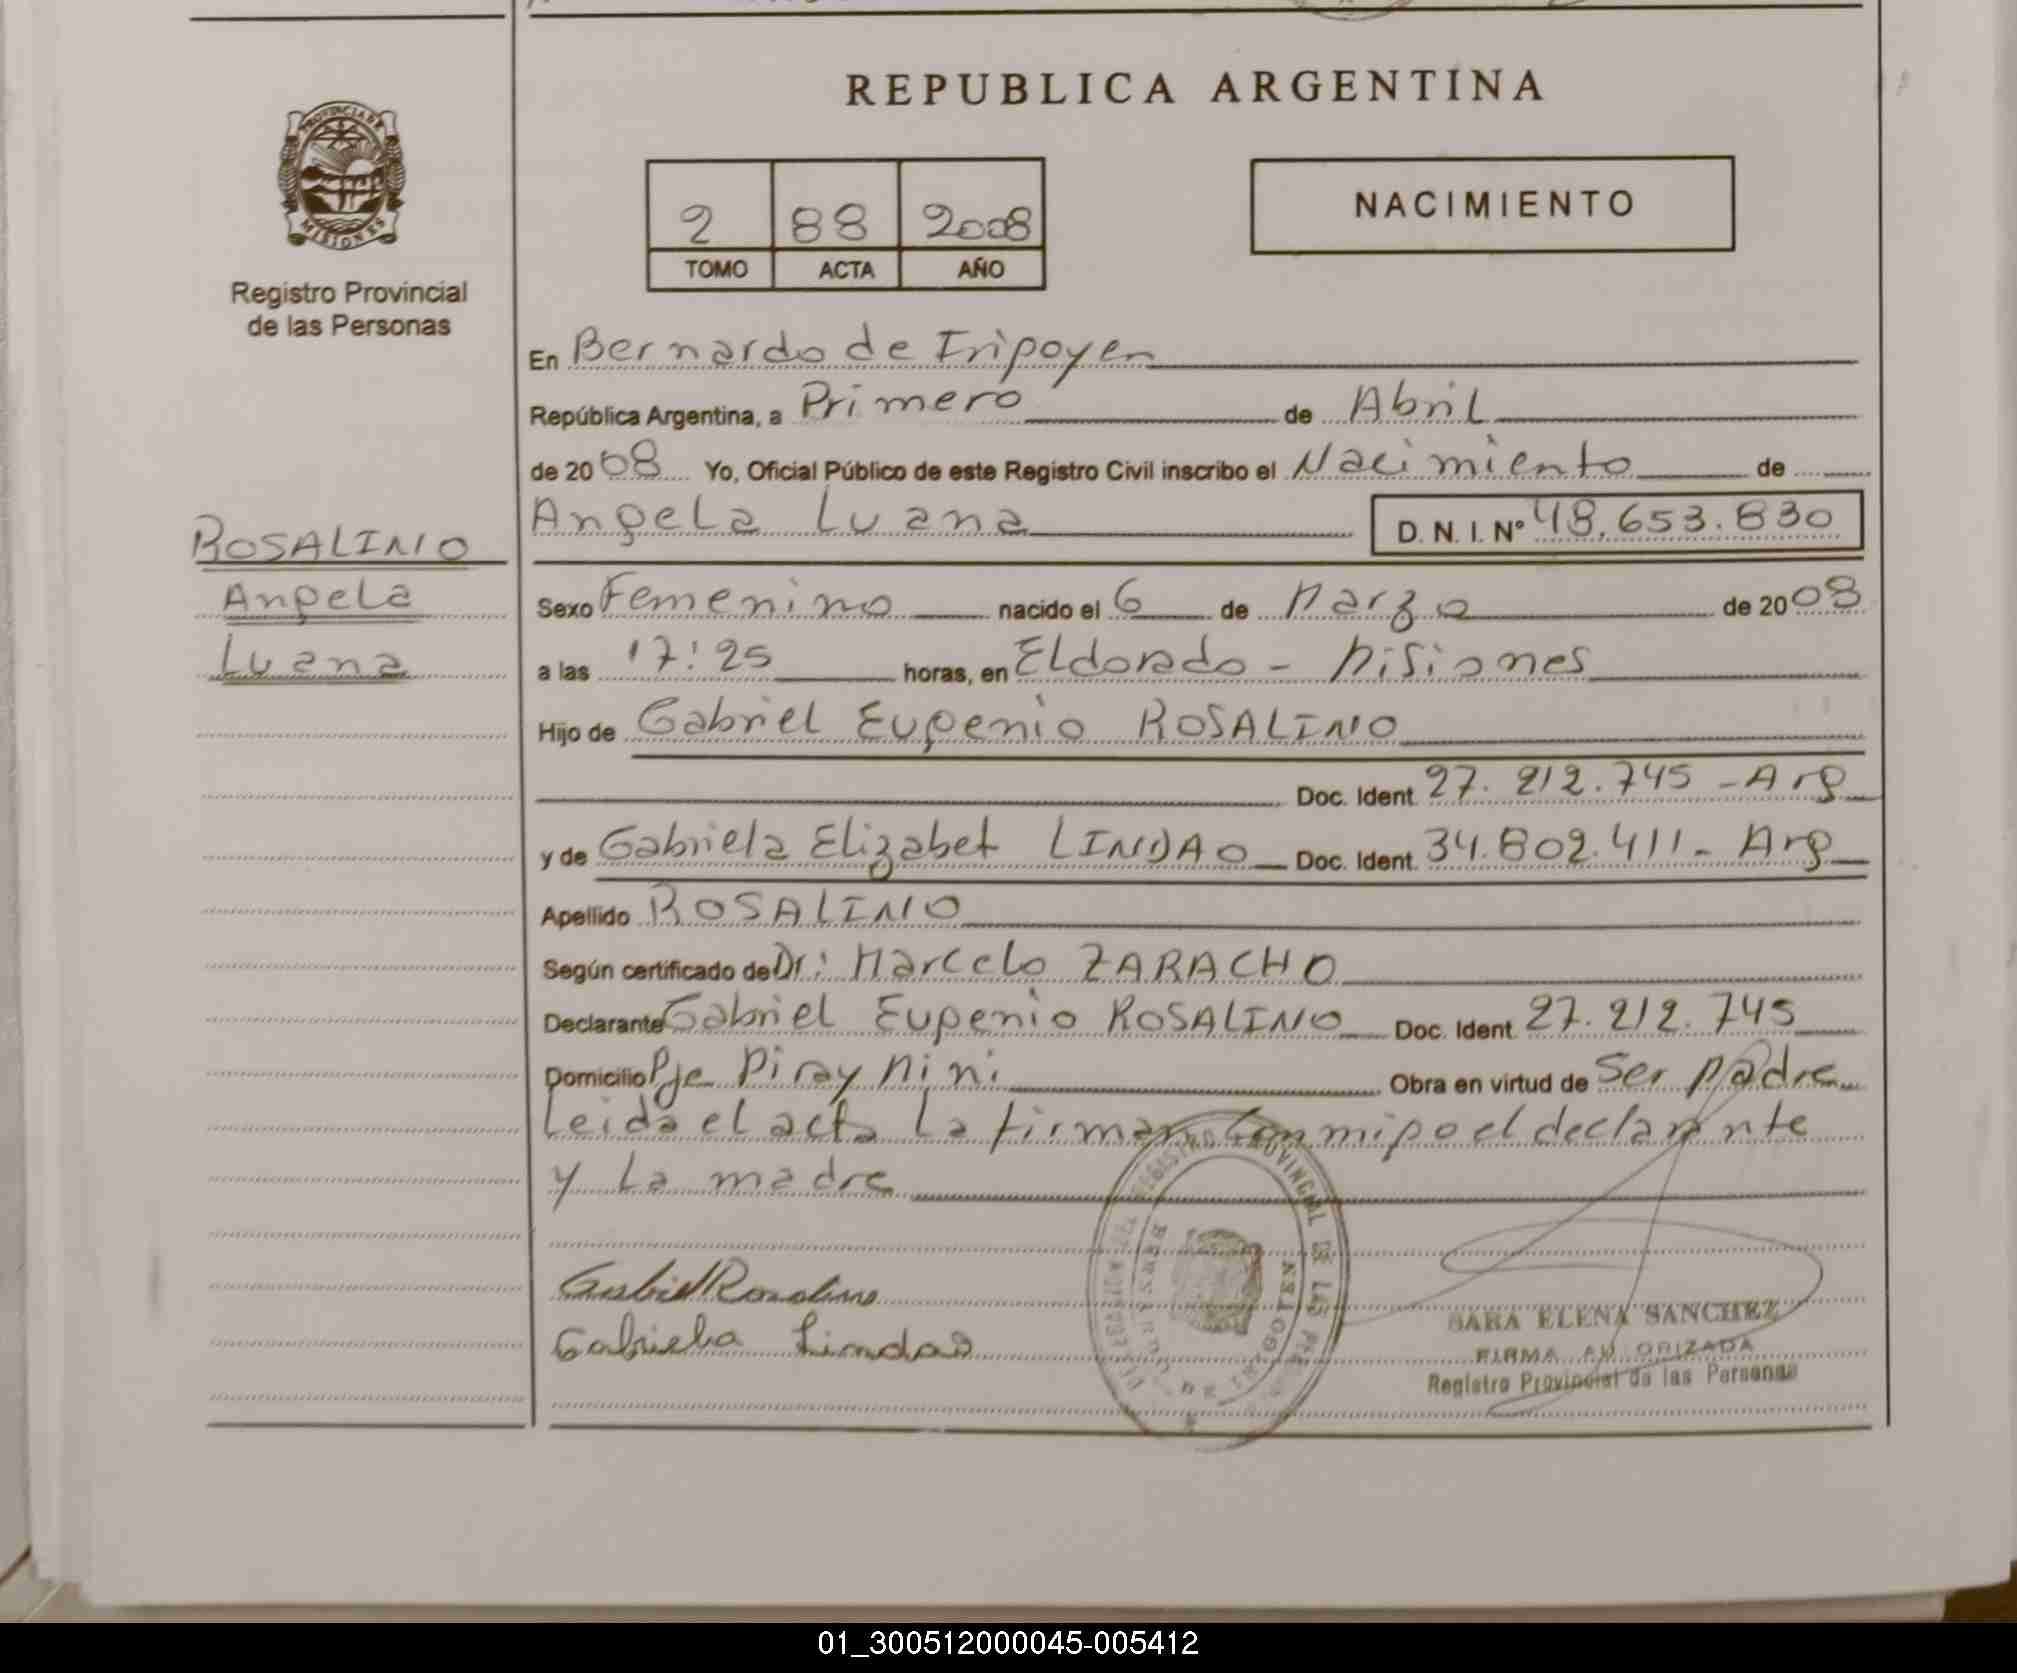 REPUBLICA ARGENTINA
PROVINCIA DE
MISIONES
Registro Provincial
de las Personas
2 88 2008
TOMO ACTA AÑO
NACIMIENTO
En Bernardo de Irigoyen
República Argentina, a Primero de Abril
de 2008 Yo, Oficial Público de este Registro Civil inscribo el Nacimiento de
Angela Luana D. N. I. Nº 48.653.830
ROSALINO
Angela
Luana
Sexo Femenino nacido el 6 de Marzo de 2008
a las 17:25 horas, en Eldorado - Misiones
Hijo de Gabriel Eugenio ROSALINO
Doc. Ident. 27.212.745 - Arg
y de Gabriela Elizabet LINDAO Doc. Ident. 34.802.411 - Arg
Apellido ROSALINO
Según certificado de Dr: Marcelo ZARACHO
Declarante Gabriel Eugenio ROSALINO Doc. Ident. 27.212.745
Domicilio Pje Piray Mini Obra en virtud de Ser padre
Leida el acta la firman conmigo el declarante
y la madre
Gabriel Rosalino
Gabriela Lindao
REGISTRO PROVINCIAL DE LAS
SARA ELENA SANCHEZ
FIRMA AUTORIZADA
Registro Provincial de las Personas
01_300512000045-005412